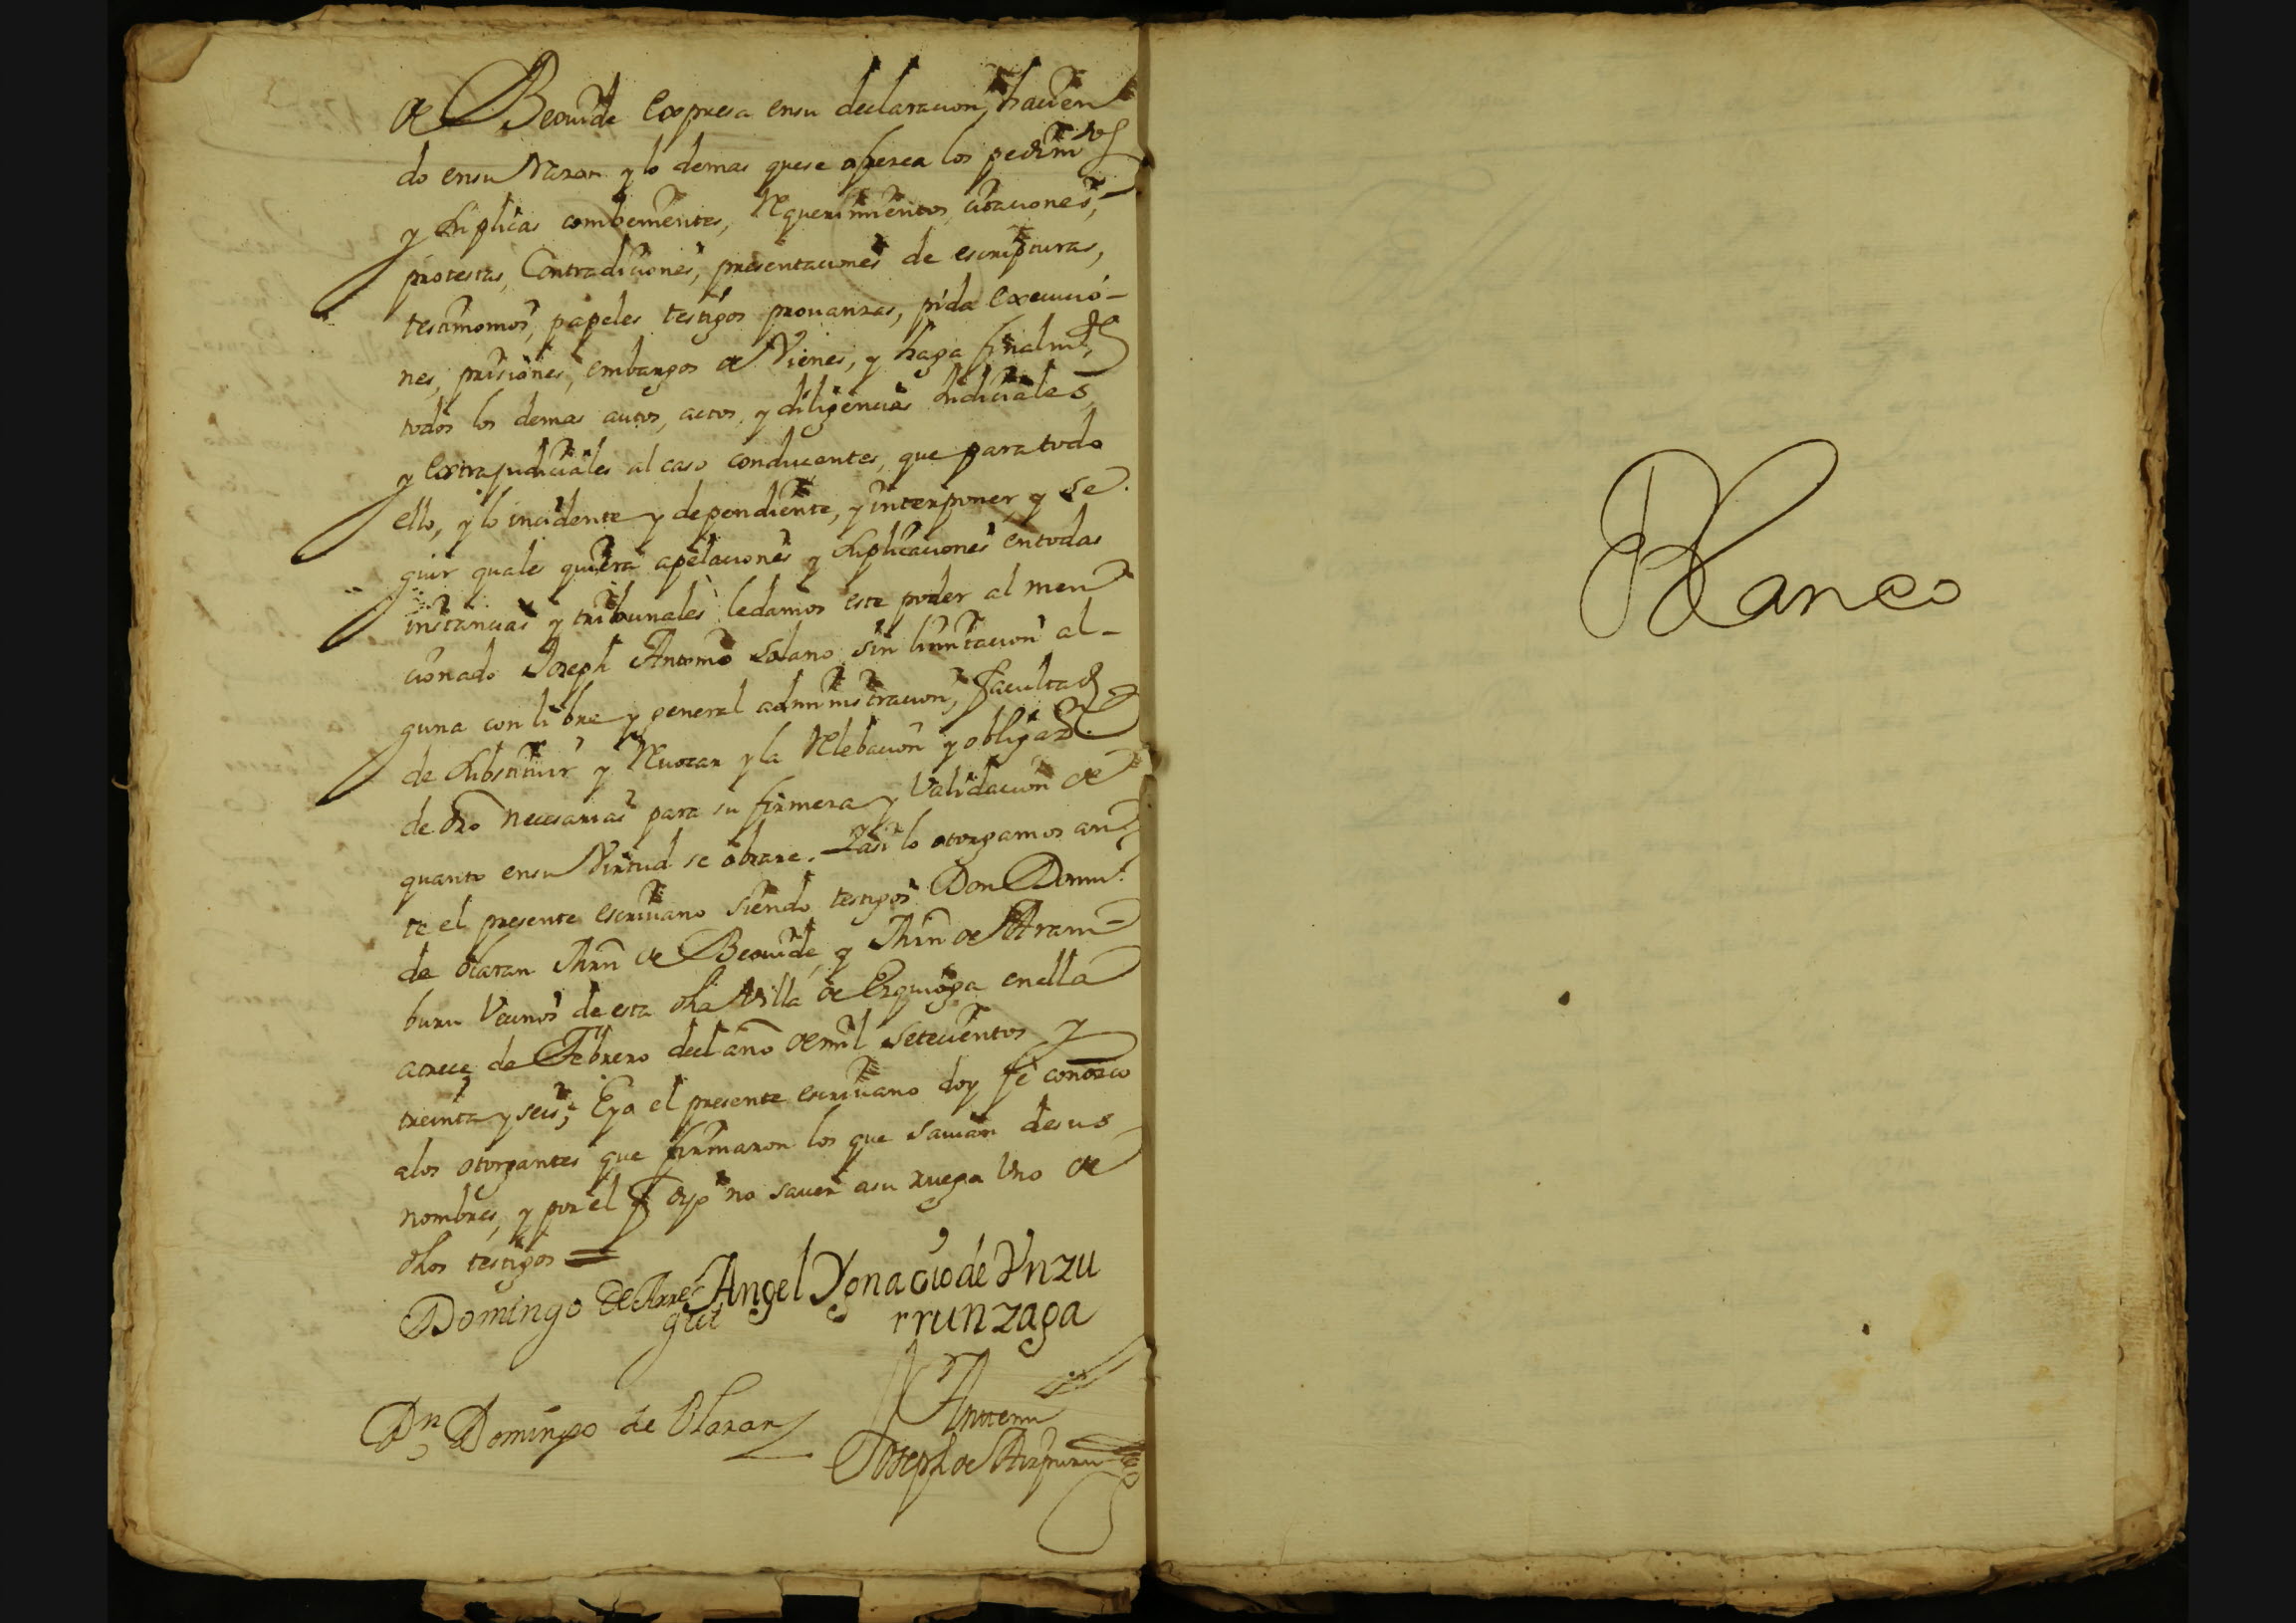 de Beouide Expresa ensu declaracion, hacien
do ensu Razon y lo demas que se ofrezca los pedimtos
y suplicas combenientes, Requerimientos, citaciones,
protestas, Contradiciones, presentaciones de escripturas,
testimonios, papeles testigos provanzas, pida Execucio-
nes, prisiones, embargos de Vienes, y haga finalmte
todos los demas autos, actos, y diligencias Judiciales,
y Extrajudiciales al caso conducentes, que para todo
ello, y lo incidente y dependiente, y interponer y se
guir quales quiera apelaciones y suplicaciones en todas
instancias y tribunales ledamos este poder al men
cionado Joseph Antonio Solano sin limitacion al-
guna con libre y general administracion, facultad
de substituir y Revocar y la Relebacion y obligazn
de dro necesarias para su firmeza y Validacion de
quanto ensu Virtud se obrare. Yasi lo otorgamos an
te el presente escrivano siendo testigos Don Domo
de olaran Thin de Beouide, y Thin de Aram=
buru Vecinos de esta dha Villa de Ezquioga enella
atrece de Febrero del año de mil setecientos y
treinta y seis; Eyo el presente escrivano doy fe conozco
alos otorgantes que firmaron los que savian de sus
nombres, y por el q dijo no saver asu ruego Uno de
dhos testigos =
Domingo de Arre Angel Ygnacio de Vnzu
gui rrunzaga
Dn Domingo de Olaran Antemi
Joseph de Aizpuru
Blanco